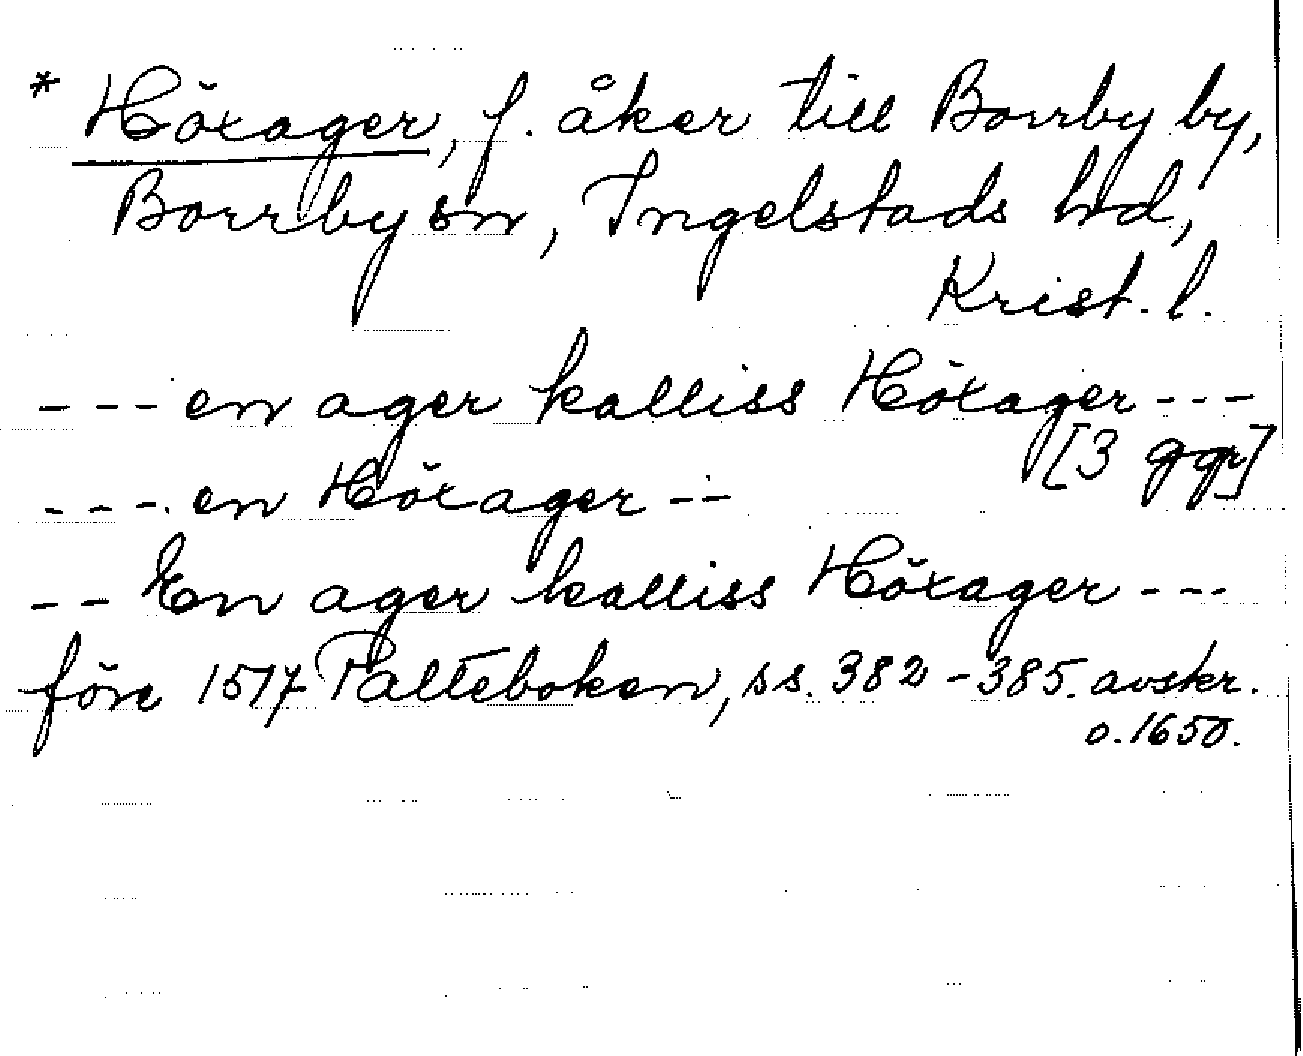 * Höxager, f. åker till Borrby by,
Borrby sn, Ingelstads hd,
Krist. l.
--- en ager kalliss Höxager ---
[3 ggr]
--- en Höxager --
-- En ager kalliss Höxager ---
före 1517 Palteboken, ss. 382-385. avskr.
o. 1650.